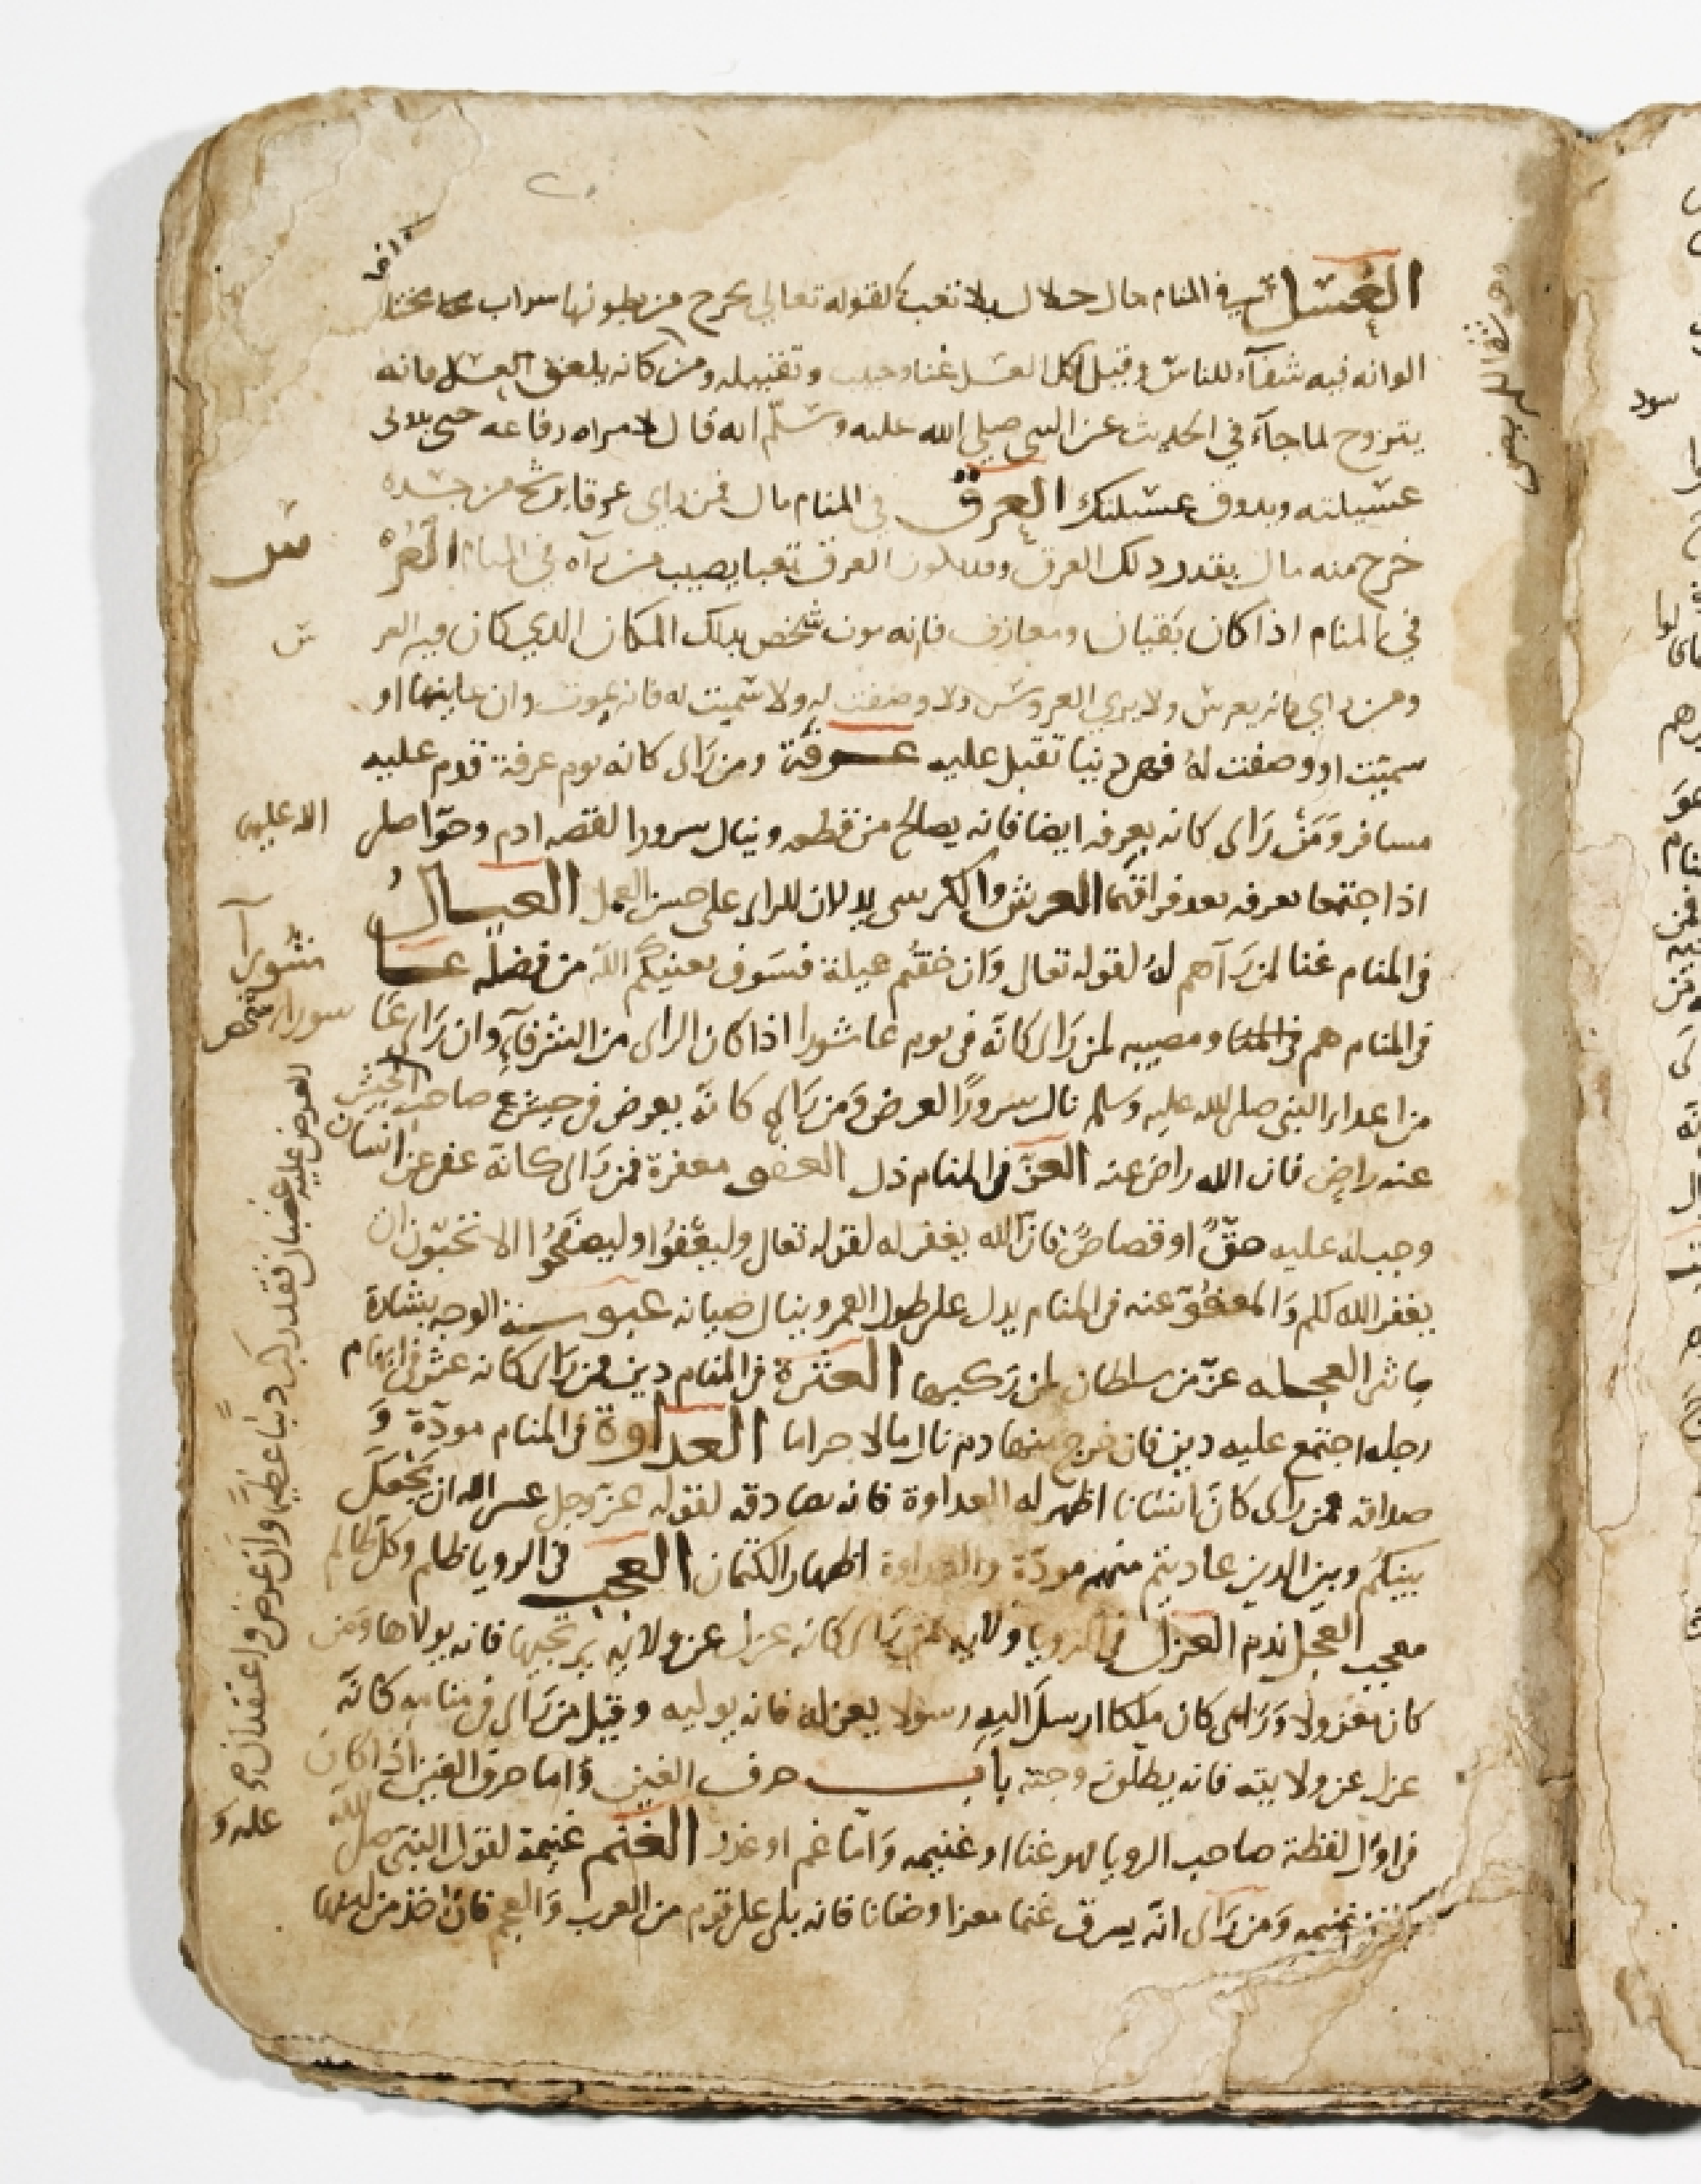 العسل في المنام مال حلال بلا تعب لقوله تعالي يخرج من بطونها شراب مختلف
الوانه فيه شفآء للناس وقيل اكل العسل عناق حبيب وتقبيله ومن كانه يلعق العسل فانه
يتزوج لما جآء في الحديث عن النبي صلي الله عليه وسلم انه قال لامراه رفاعه حتى تذوقى
عسيلته ويذوق عسيلتك العرق في المنام مال فمن راي عرقا يرشح من جسده
خرج منه مال بقدر ذلك العرق وقد يكون العرق تعبا يصيب من رآه في المنام العرس
في المنام اذا كان بقينات ومعازف فانه موت شخص بذلك المكان الذي كان فيه العرس
ومن راي كانه يعرس ولا يري العروس ولا وصفت له ولا سميت له فانه يموت وان عاينها او
سميت او وصفت له فهى دنيا تقبل عليه عرفة ومن رأى كانه يوم عرفة قدم عليه
مسافر ومن رأى كانه بعرفه ايضا فانه يصالح من قطعه وينال سرورا لقصه ادم وحوا صلى
الله عليهما
اذا اجتمعا بعرفه بعد فراقهما العرش والكرسى يدلان للراى على حسن العمل العيال
فى المنام غنا لمن رآهم له لقوله تعالى وان خفتم عيلة فسوف يغنيكم الله من فضله عا
شورآ
فى المنام هم ومصيبه لمن رأى كانه فى يوم عاشورا اذا كان الراى من الشرفآء وان رأى عا
شورا شخص
من اعداء النبى صلى الله عليه وسلم نال سرورا العرض ومن رأى كانه يعرض فى جيش ع صاحب الجيش
عنه راض فان الله راض عنه العز فى المنام ذل العفو مغفرة فمن رأى كانه عفى عن انسان
وجب له عليه حق او قصاص فان الله يغفر له لقوله تعالى وليعفوا وليصفحوا الا تحبون ان
يغفر الله لكم والمعفو عنه فى المنام يدل على طول العمر وينال صيانه عبوسة الوجه بشارة
بانثى العجله عز من سلطان لمن ركبها العثرة فى المنام دين فمن رأى كانه عثر فى ابهام
رجله اجتمع عليه دين فان خرج منها دم نال مالا حراما العداوة فى المنام مودة و
صداقه فمن رأى كان انسانا اظهر له العداوة فانه يصادقه لقوله عز وجل عسى الله ان يجعل
بينكم وبين الذين عاديتم منهم مودة والعداوة اظهار الكتمان العجب فى الرويا ظلم وكل ظالم
معجب العجل ندم العزل فى الرويا ولايه فمن رأى كانه عزل عن ولايه يرتجيها فانه يولاها ومن
كان معزولا ورأى كان ملكا ارسل اليه رسولا يعزله فانه يوليه وقيل من رأى فى منامه كانه
عزل عن ولايته فانه يطلق زوجته باب حرف الغين واما حرف الغين اذا كان
فى اول لفظة صاحب الرويا فهو غنا او غنيمه واما غم او غدر الغنم غنيمة لقول النبى صلى الله
عليه و
غنيمه ومن رأى انه يسوق غنما معزا وضانا فانه يلى على قوم من العرب والعجم فان اخذ من لبنها
العرض عليه غضبان فقد ركب دنبا عظيما وان عرض واعتقد ان